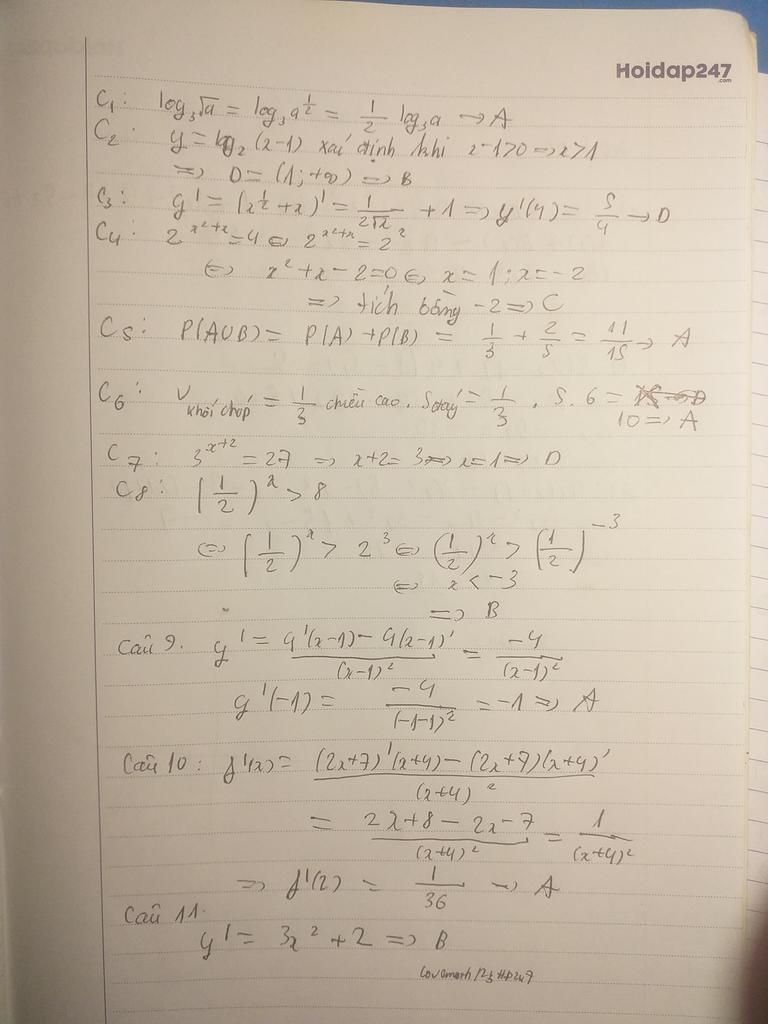 Hoidap247.com
C1: log₃√a = log₃a^{1/2} = 1/2 log₃a → A
C2: y = log₂(x-1) xác định khi x-1>0 => x>1
=> D = (1; +∞) => B
C3: y' = (x^{1/2} + x)' = 1/(2√x) + 1 => y'(4) = 5/4 → D
C4: 2^{x²+x} = 4 ⇔ 2^{x²+x} = 2²
⇔ x² + x - 2 = 0 ⇔ x = 1; x = -2
=> tích bằng -2 => C
C5: P(A∪B) = P(A) + P(B) = 1/3 + 2/5 = 11/15 → A
C6: V khối chóp = 1/3 chiều cao . S đáy = 1/3 . 5 . 6 =
10 => A
C7: 3^{x+2} = 27 => x+2 = 3 => x = 1 => D
C8: (1/2)^x > 8
⇔ (1/2)^x > 2³ ⇔ (1/2)^x > (1/2)^{-3}
⇔ x < -3
=> B
Câu 9. y' = (4'(x-1) - 4(x-1)')/(x-1)² = -4/(x-1)²
y'(-1) = -4/(-1-1)² = -1 => A
Câu 10: f'(x) = ((2x+7)'(x+4) - (2x+7)(x+4)')/(x+4)²
= (2x+8-2x-7)/(x+4)² = 1/(x+4)²
=> f'(2) = 1/36 → A
Câu 11.
y' = 3x² + 2 => B